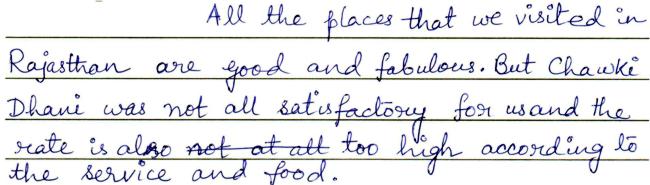 All the places that we visited in
Rajasthan are good and fabulous. But Chawki
Dhani was not all satisfactory for us and the
rate is also not at all too high according to
the service and food.